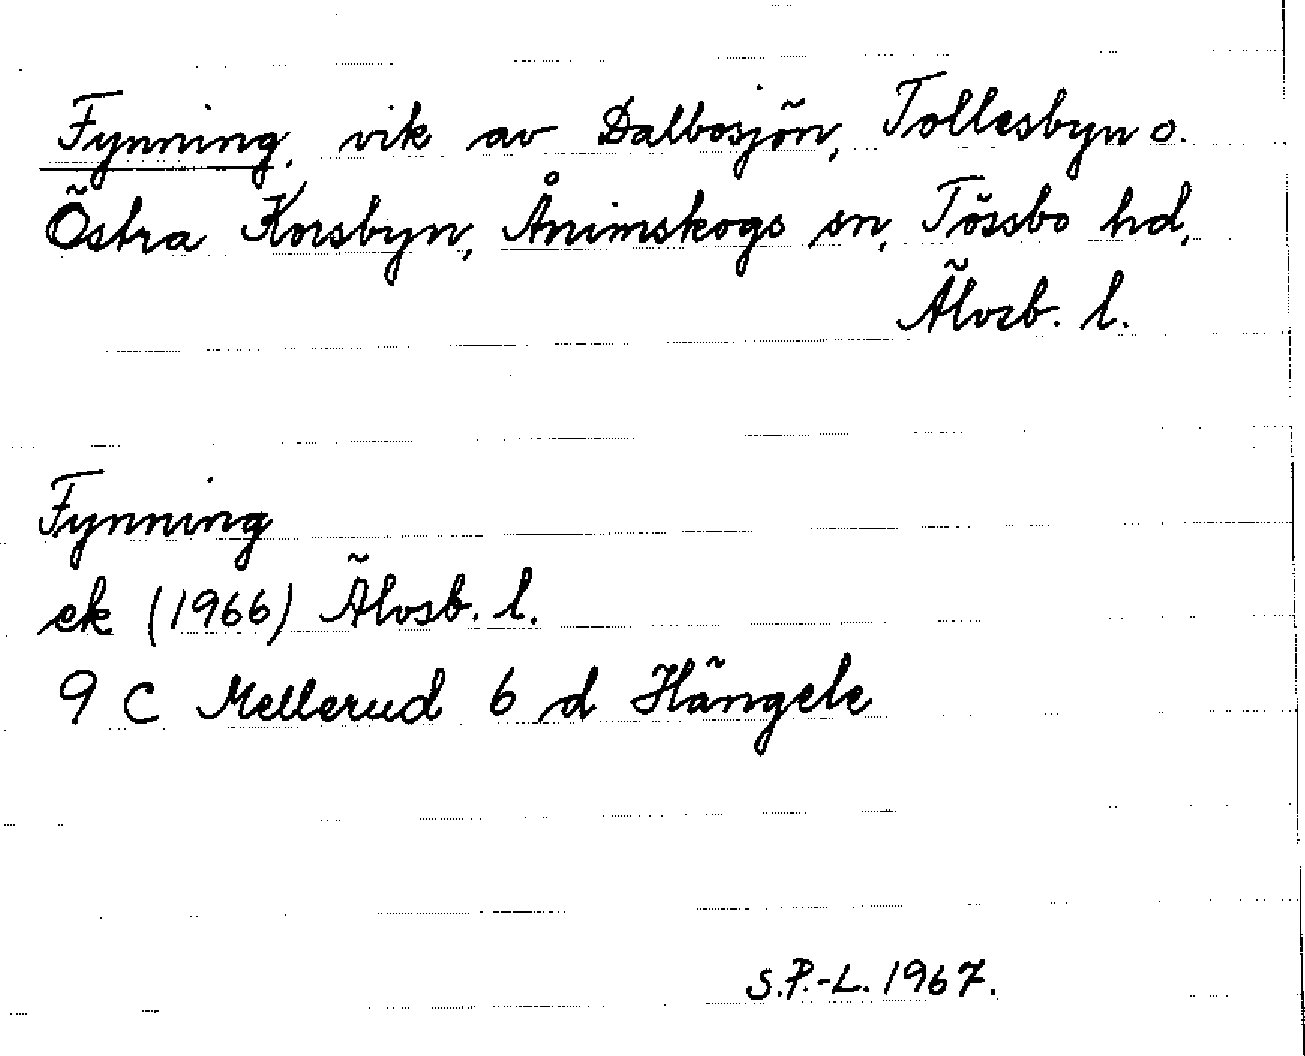 Fynning, vik av Dalbosjön, Tollesbyn o.
Östra Korsbyn, Ånimskogs sn, Tössbo hd,
Älvsb. l.
Fynning
ek (1966) Älvsb. l.
9 C Mellerud 6 d Hängele
S.P.-L. 1967.